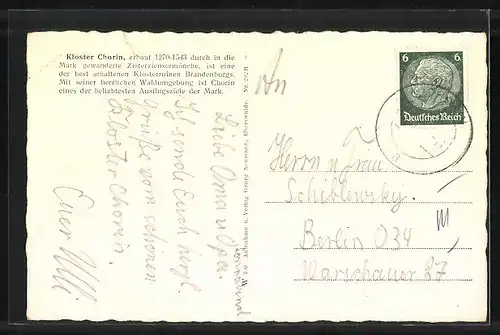 Kloster Chorin, erbaut 1270-1543 durch in die
Mark gewanderte Zisterziensermönche, ist eine
der best erhaltenen Klosterruinen Brandenburgs.
Mit seiner herrlichen Waldumgebung ist Chorin
eines der beliebtesten Ausflugsziele der Mark.
Liebe Oma u. Opa.
Ich sende Euch herzl.
Grüße vom schönen
Kloster Chorin.
Euer Ulli
Aufnahme u. Verlag Georg
Eberswalde.
An
6 6
Deutsches Reich
Herrn u. Frau
Schiblewsky.
Berlin O 34
Warschauer 87